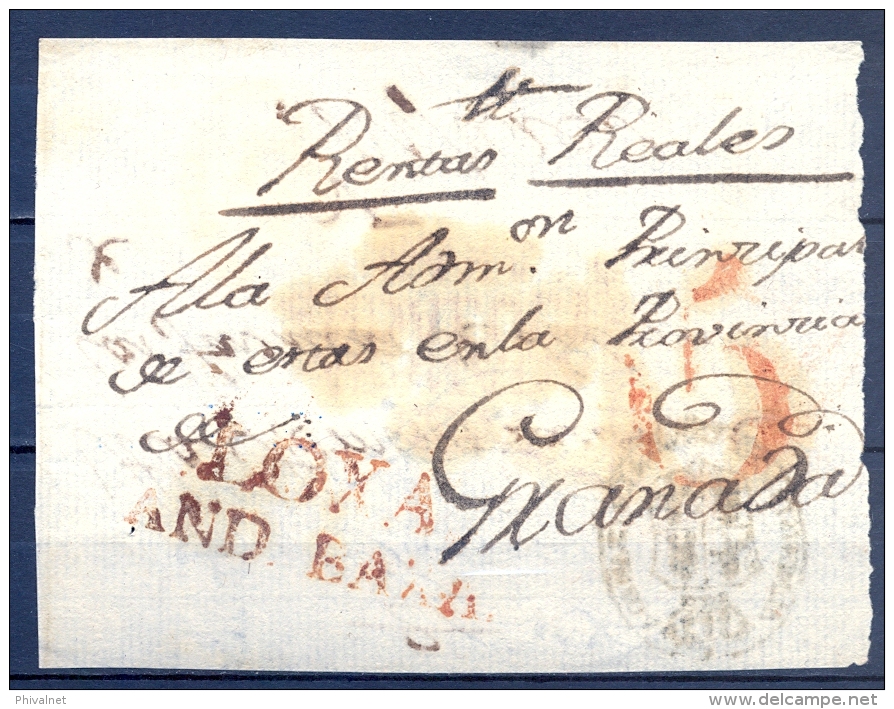 Rentas Reales
A la Adm.on Principal
de estas en la Provincia
de
Granada
LOXA
AND. BAXA.
5
Phivalnet
www.delcampe.net